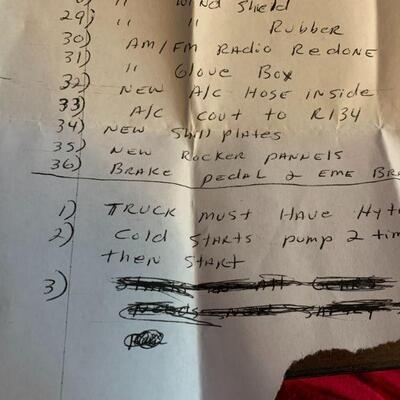 " Wind Shield
29) " " Rubber
30) AM/FM Radio Redone
31) " Glove Box
32) New A/C Hose inside
33) A/C cout to R134
34) New Shill plates
35) New Rocker pannels
36) Brake pedal & EME Br
1) TRUCK must Have Hyt
2) Cold STARTS pump 2 tim
then START
3)